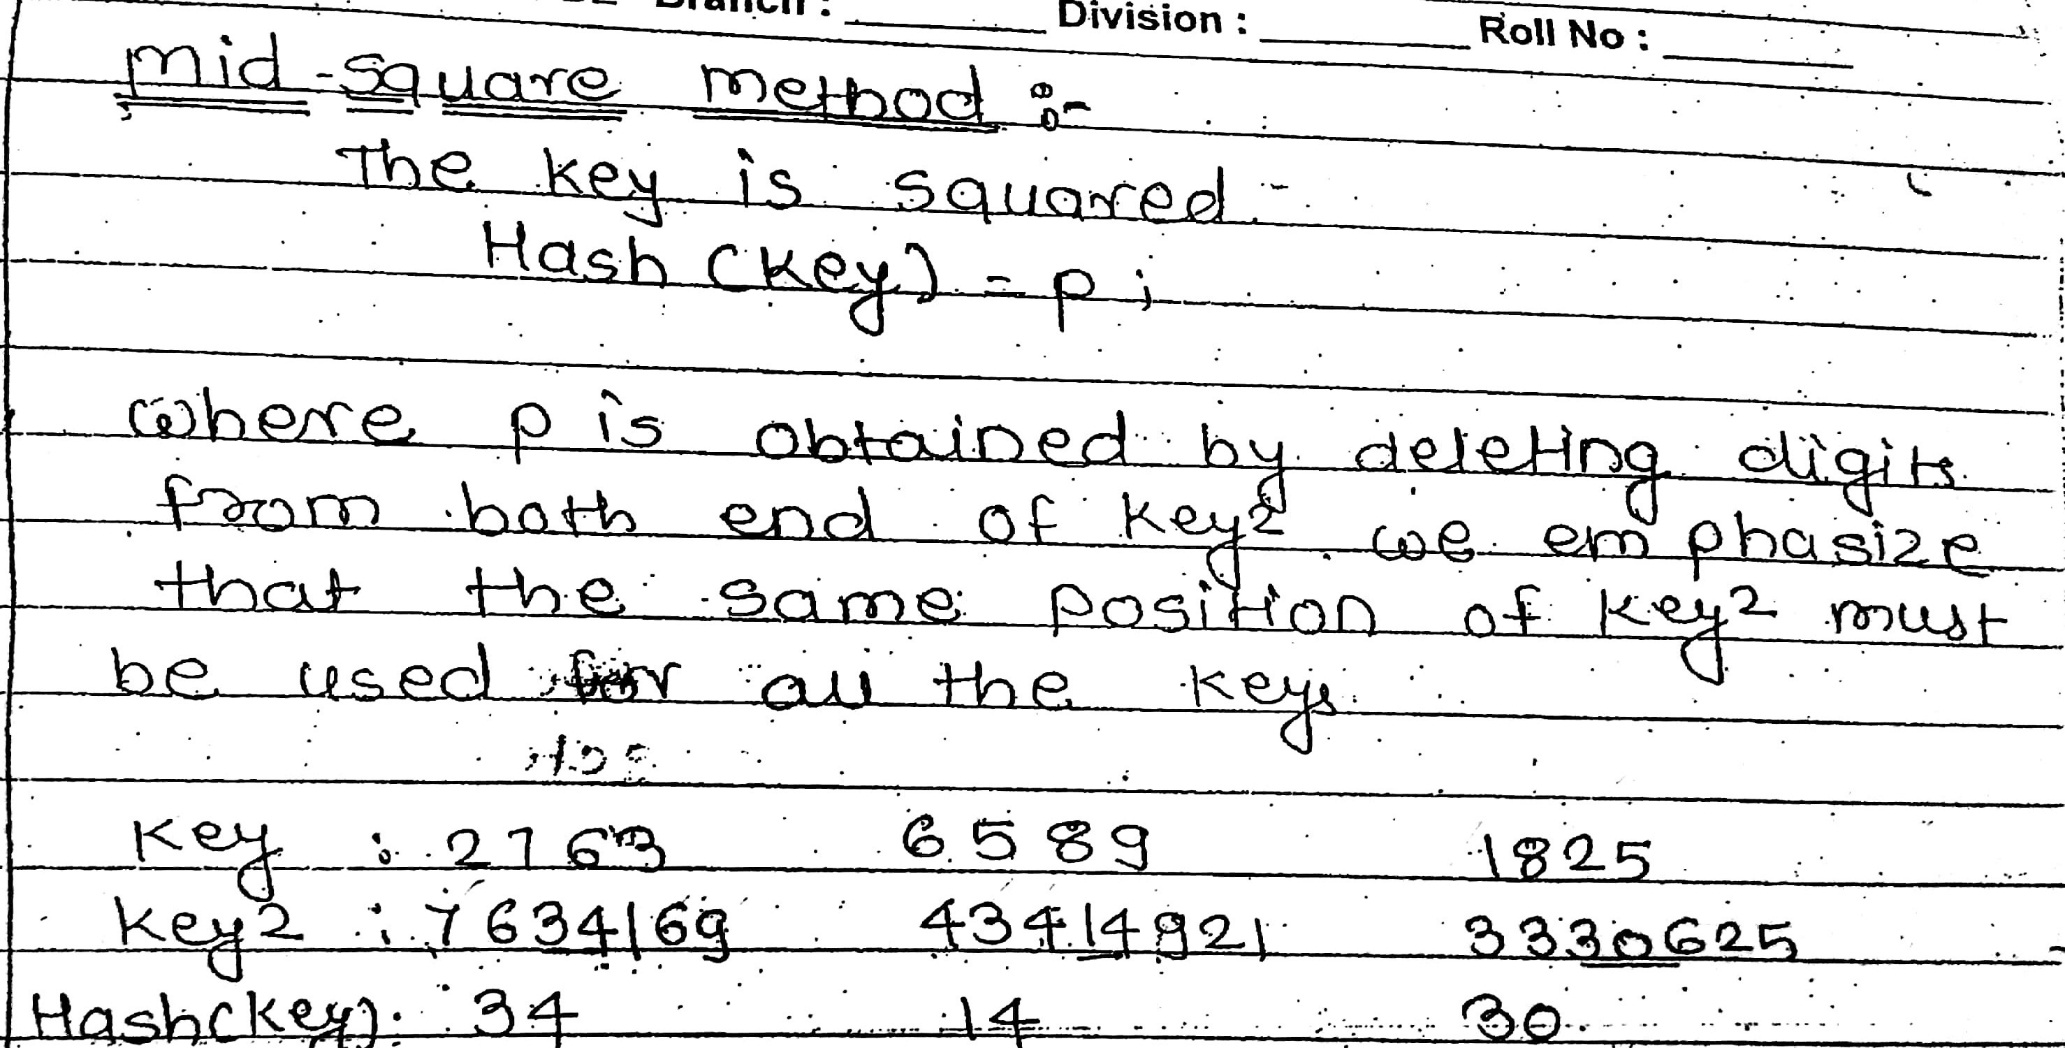 Division : Roll No :
mid-square method :-
The key is squared
Hash (key) = p ;
where p is obtained by deleting digits
from both end of key2. we emphasize
that the same position of key2 must
be used for all the keys
key : 2763 6589 1825
key2 : 7634169 43414921 3330625
Hash(key): 34 14 30